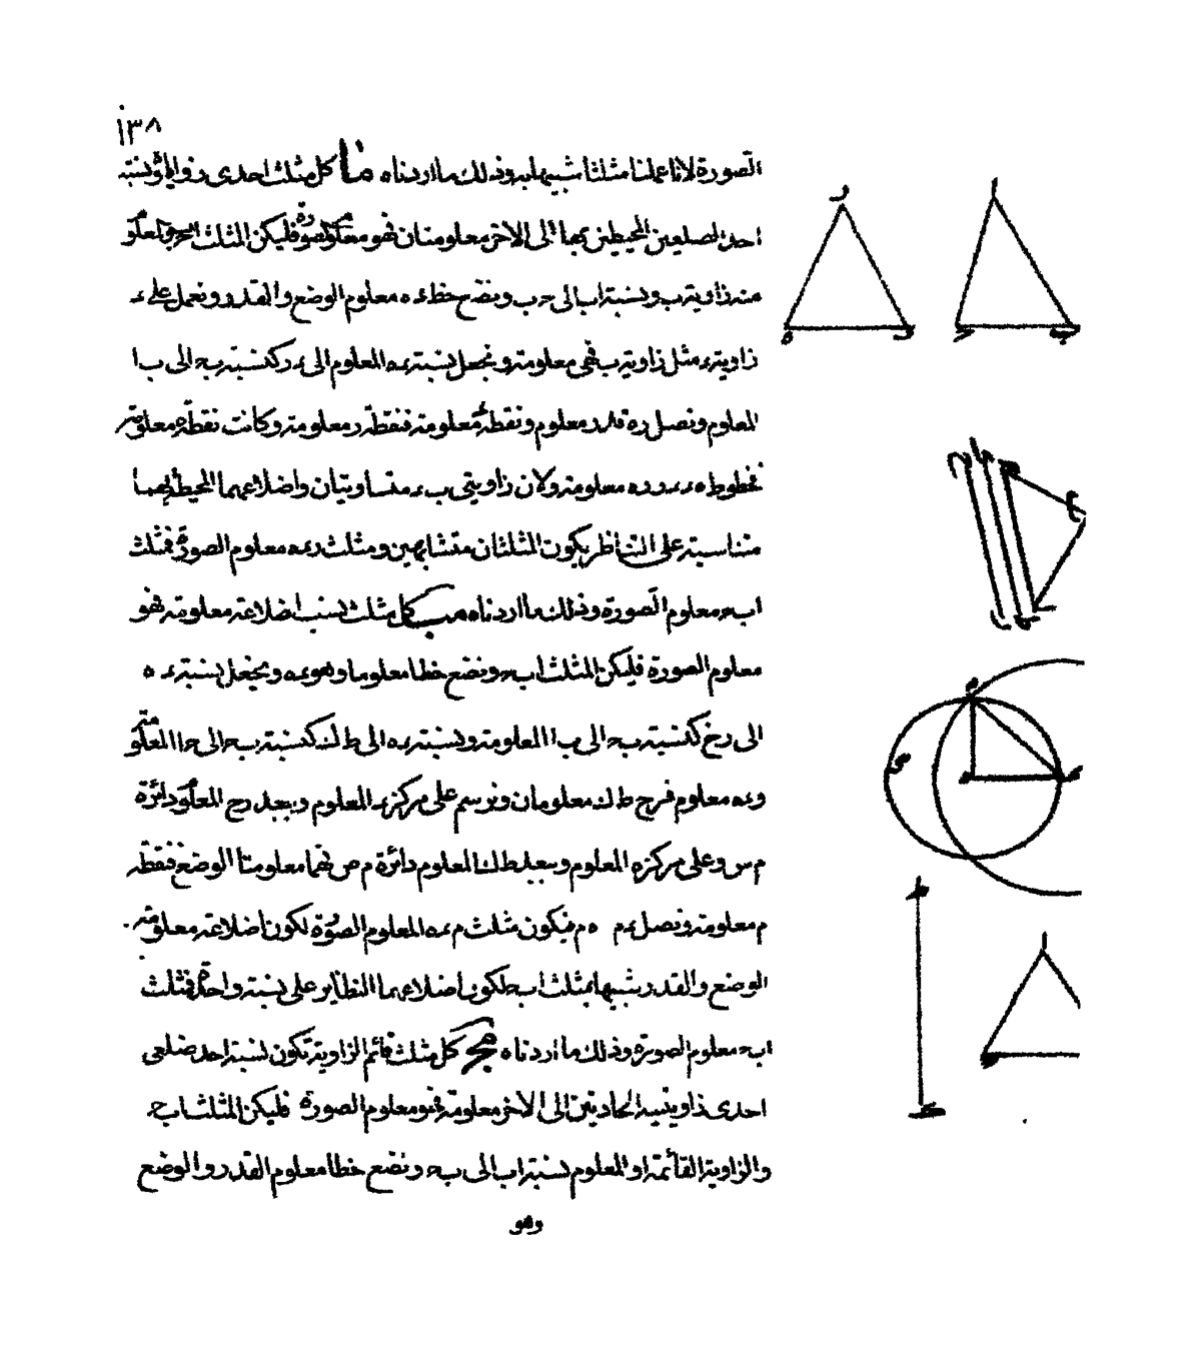 ١٣٨
الصورة لانا عملنا مثلثا شبيها به وذلك ما اردناه ما كل مثلث احدى زواياه ونسبة
احد الضلعين المحيطين بها الى الاخر معلومتان فهو معلوم الصورة فليكن المثلث ابج والمعلوم
منه زاوية ب ونسبة اب الى ب ونضع خط ء ه معلوم الوضع والقدر ونعمل على ء
زاوية ء مثل زاوية ب فهي معلومة ونجعل نسبة ء ه المعلوم الى ء ر كنسبة ب ج الى ب ا
المعلوم ونصل ر ه قدر معلوم ونقطة ء معلومة فنقطة ر معلومة وكانت نقطة ه معلومة
فخطوط ه ء ء ر ر ه معلومة ولان زاويتي ب ء متساويتان واضلاعهما المحيطة بهما
متناسبة على التناظر يكون المثلثان متشابهين ومثلث ر ء ه معلوم الصورة فمثلث
ا ب ج معلوم الصورة وذلك ما اردناه مب كل مثلث نسب اضلاعه معلومة فهو
معلوم الصورة فليكن المثلث ا ب ج ونضع خطا معلوما وهو ء ه ونجعل نسبة ء ه
الى رح كنسبة ب ج الى ب ا المعلومة ونسبة ء ه الى ط ك كنسبة ب ج الى ج ا المعلومة
و ء ه معلوم فرح ط ك معلومان ونرسم على مركز ء المعلوم وببعد رح المعلوم دائرة
م س وعلى مركز ه المعلوم وببعد ط ك المعلوم دائرة م ص فهما معلومتا الوضع فنقطة
م معلومة ونصل ء م ه م فيكون مثلث م ء ه المعلوم الصورة لكون اضلاعه معلومة
الوضع والقدر شبيها بمثلث ا ب ج لكون اضلاعهما النظاير على نسبة واحدة فمثلث
ا ب ج معلوم الصورة وذلك ما اردناه مج كل مثلث قائم الزاوية تكون نسبة احد ضلعى
احدى زاويتيه الحادتين الى الاخر معلومة فهو معلوم الصورة فليكن المثلث ا ب ج
والزاوية القائمة ا والمعلوم نسبة اب الى ب ج ونضع خطا معلوم القدر والوضع
وهو